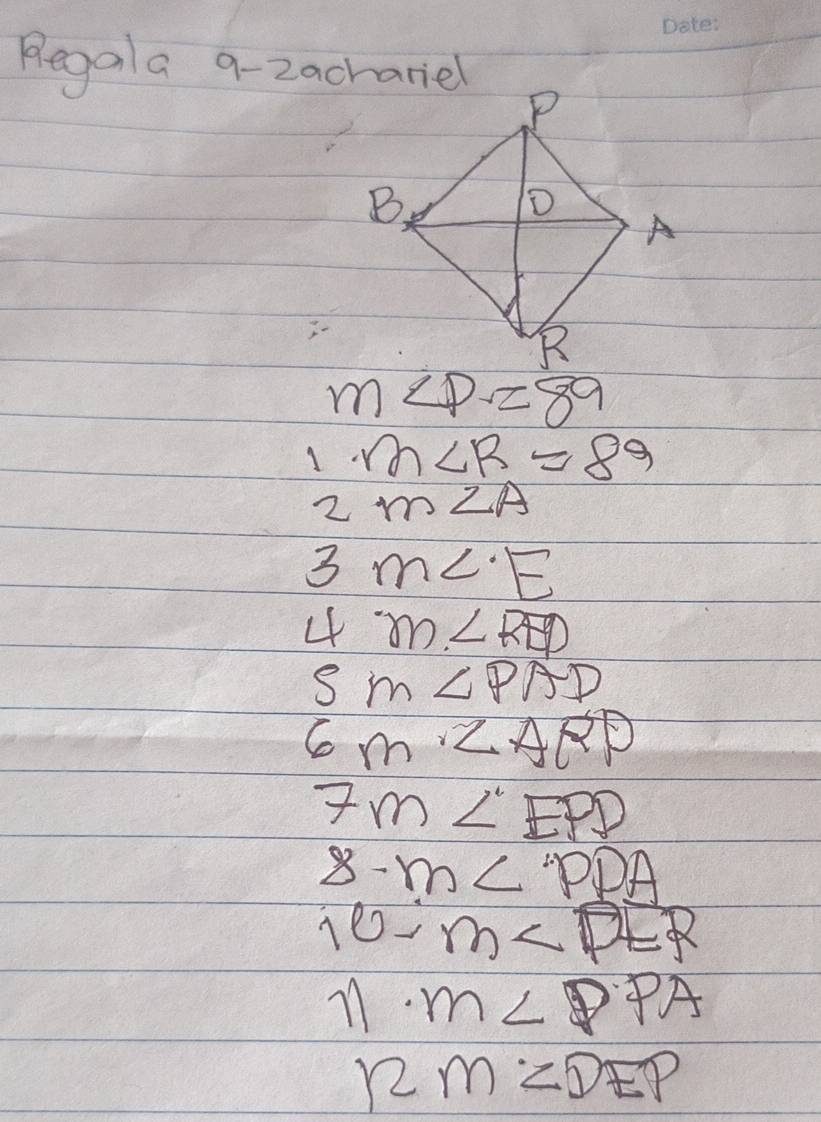 Date:
Regala 9-zachariel
P
B D A
R
m <P = 89
1 m<R = 89
2 m<A
3 m<E
4 m<RED
5 m<PAD
6 m<ARP
7 m<EPD
8-m<PDA
10-m<DER
11 m<DPA
12 m<DEP